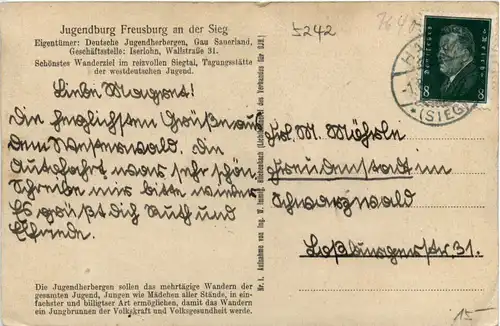 Jugendburg Freusburg an der Sieg
Eigentümer: Deutsche Jugendherbergen, Gau Sauerland,
Geschäftsstelle: Iserlohn, Wallstraße 31.
Schönstes Wanderziel im reizvollen Siegtal, Tagungsstätte
der westdeutschen Jugend.
Liebe Magret!
Die herzlichsten Grüße aus
dem Westerwald. Die
Autofahrt war sehr schön.
Schreibe mir bitte wieder
Es grüßt dich Ruth und
Elfriede.
Die Jugendherbergen sollen das mehrtägige Wandern der
gesamten Jugend, Jungen wie Mädchen aller Stände, in ein-
fachster und billigster Art ermöglichen, damit das Wandern
ein Jungbrunnen der Volkskraft und Volksgesundheit werde.
Nr. 1. Aufnahme von Ing. W. des Verbandes für DJH.)
5242
Deutsches Reich
8 8
(SIEG)
Frl. M. Möhrle
Freudenstadt im
Schwarzwald
Loßburgerstr. 31.
15-